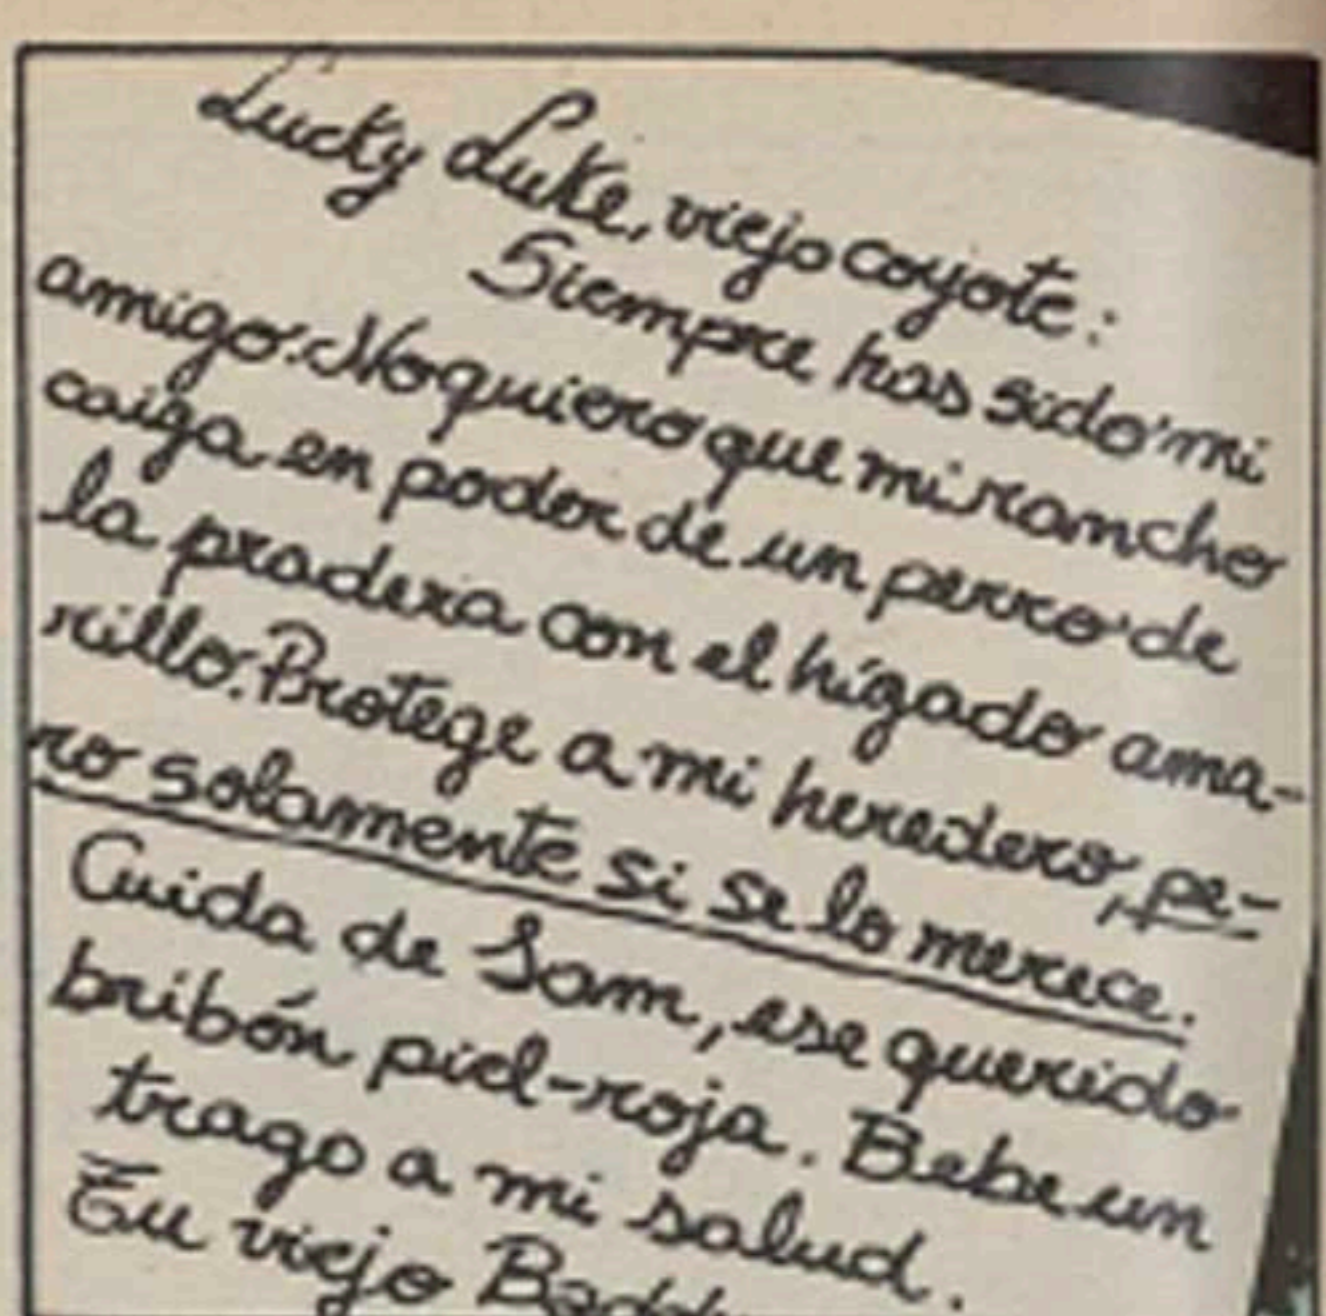 Lucky Luke, viejo coyote:
Siempre has sido mi
amigo. No quiero que mi rancho
caiga en poder de un perro de
la pradera con el hígado ama-
rillo. Protege a mi heredero, pe-
ro solamente si se lo merece.
Cuida de Sam, ese querido
bribón piel-roja. Bebe un
trago a mi salud.
Tu viejo